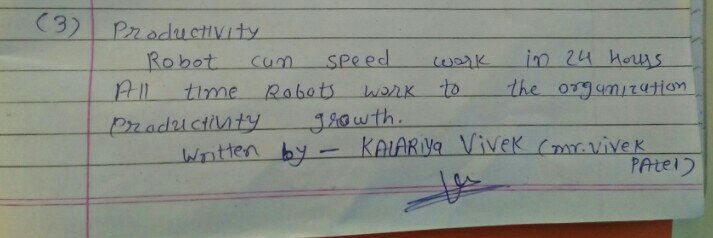 (3) Productivity
Robot can speed work in 24 hours
All time Robots work to the organization
productivity growth.
Written by - KALARIYA VIVEK (mr. vivek
PATEL)